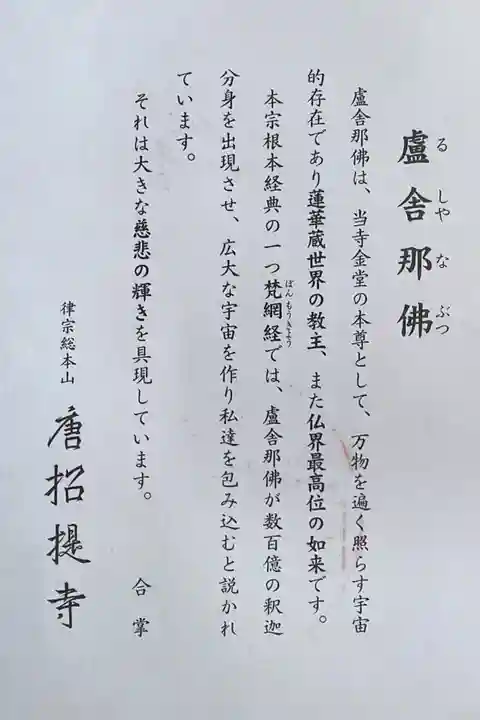 盧舎那佛
るしやなぶつ
盧舎那佛は、当寺金堂の本尊として、万物を遍く照らす宇宙
的存在であり蓮華蔵世界の教主、また仏界最高位の如来です。
本宗根本経典の一つ梵網経では、盧舎那佛が数百億の釈迦
ぼんもうきょう
分身を出現させ、広大な宇宙を作り私達を包み込むと説かれ
ています。
それは大きな慈悲の輝きを具現しています。
合掌
律宗総本山
唐招提寺